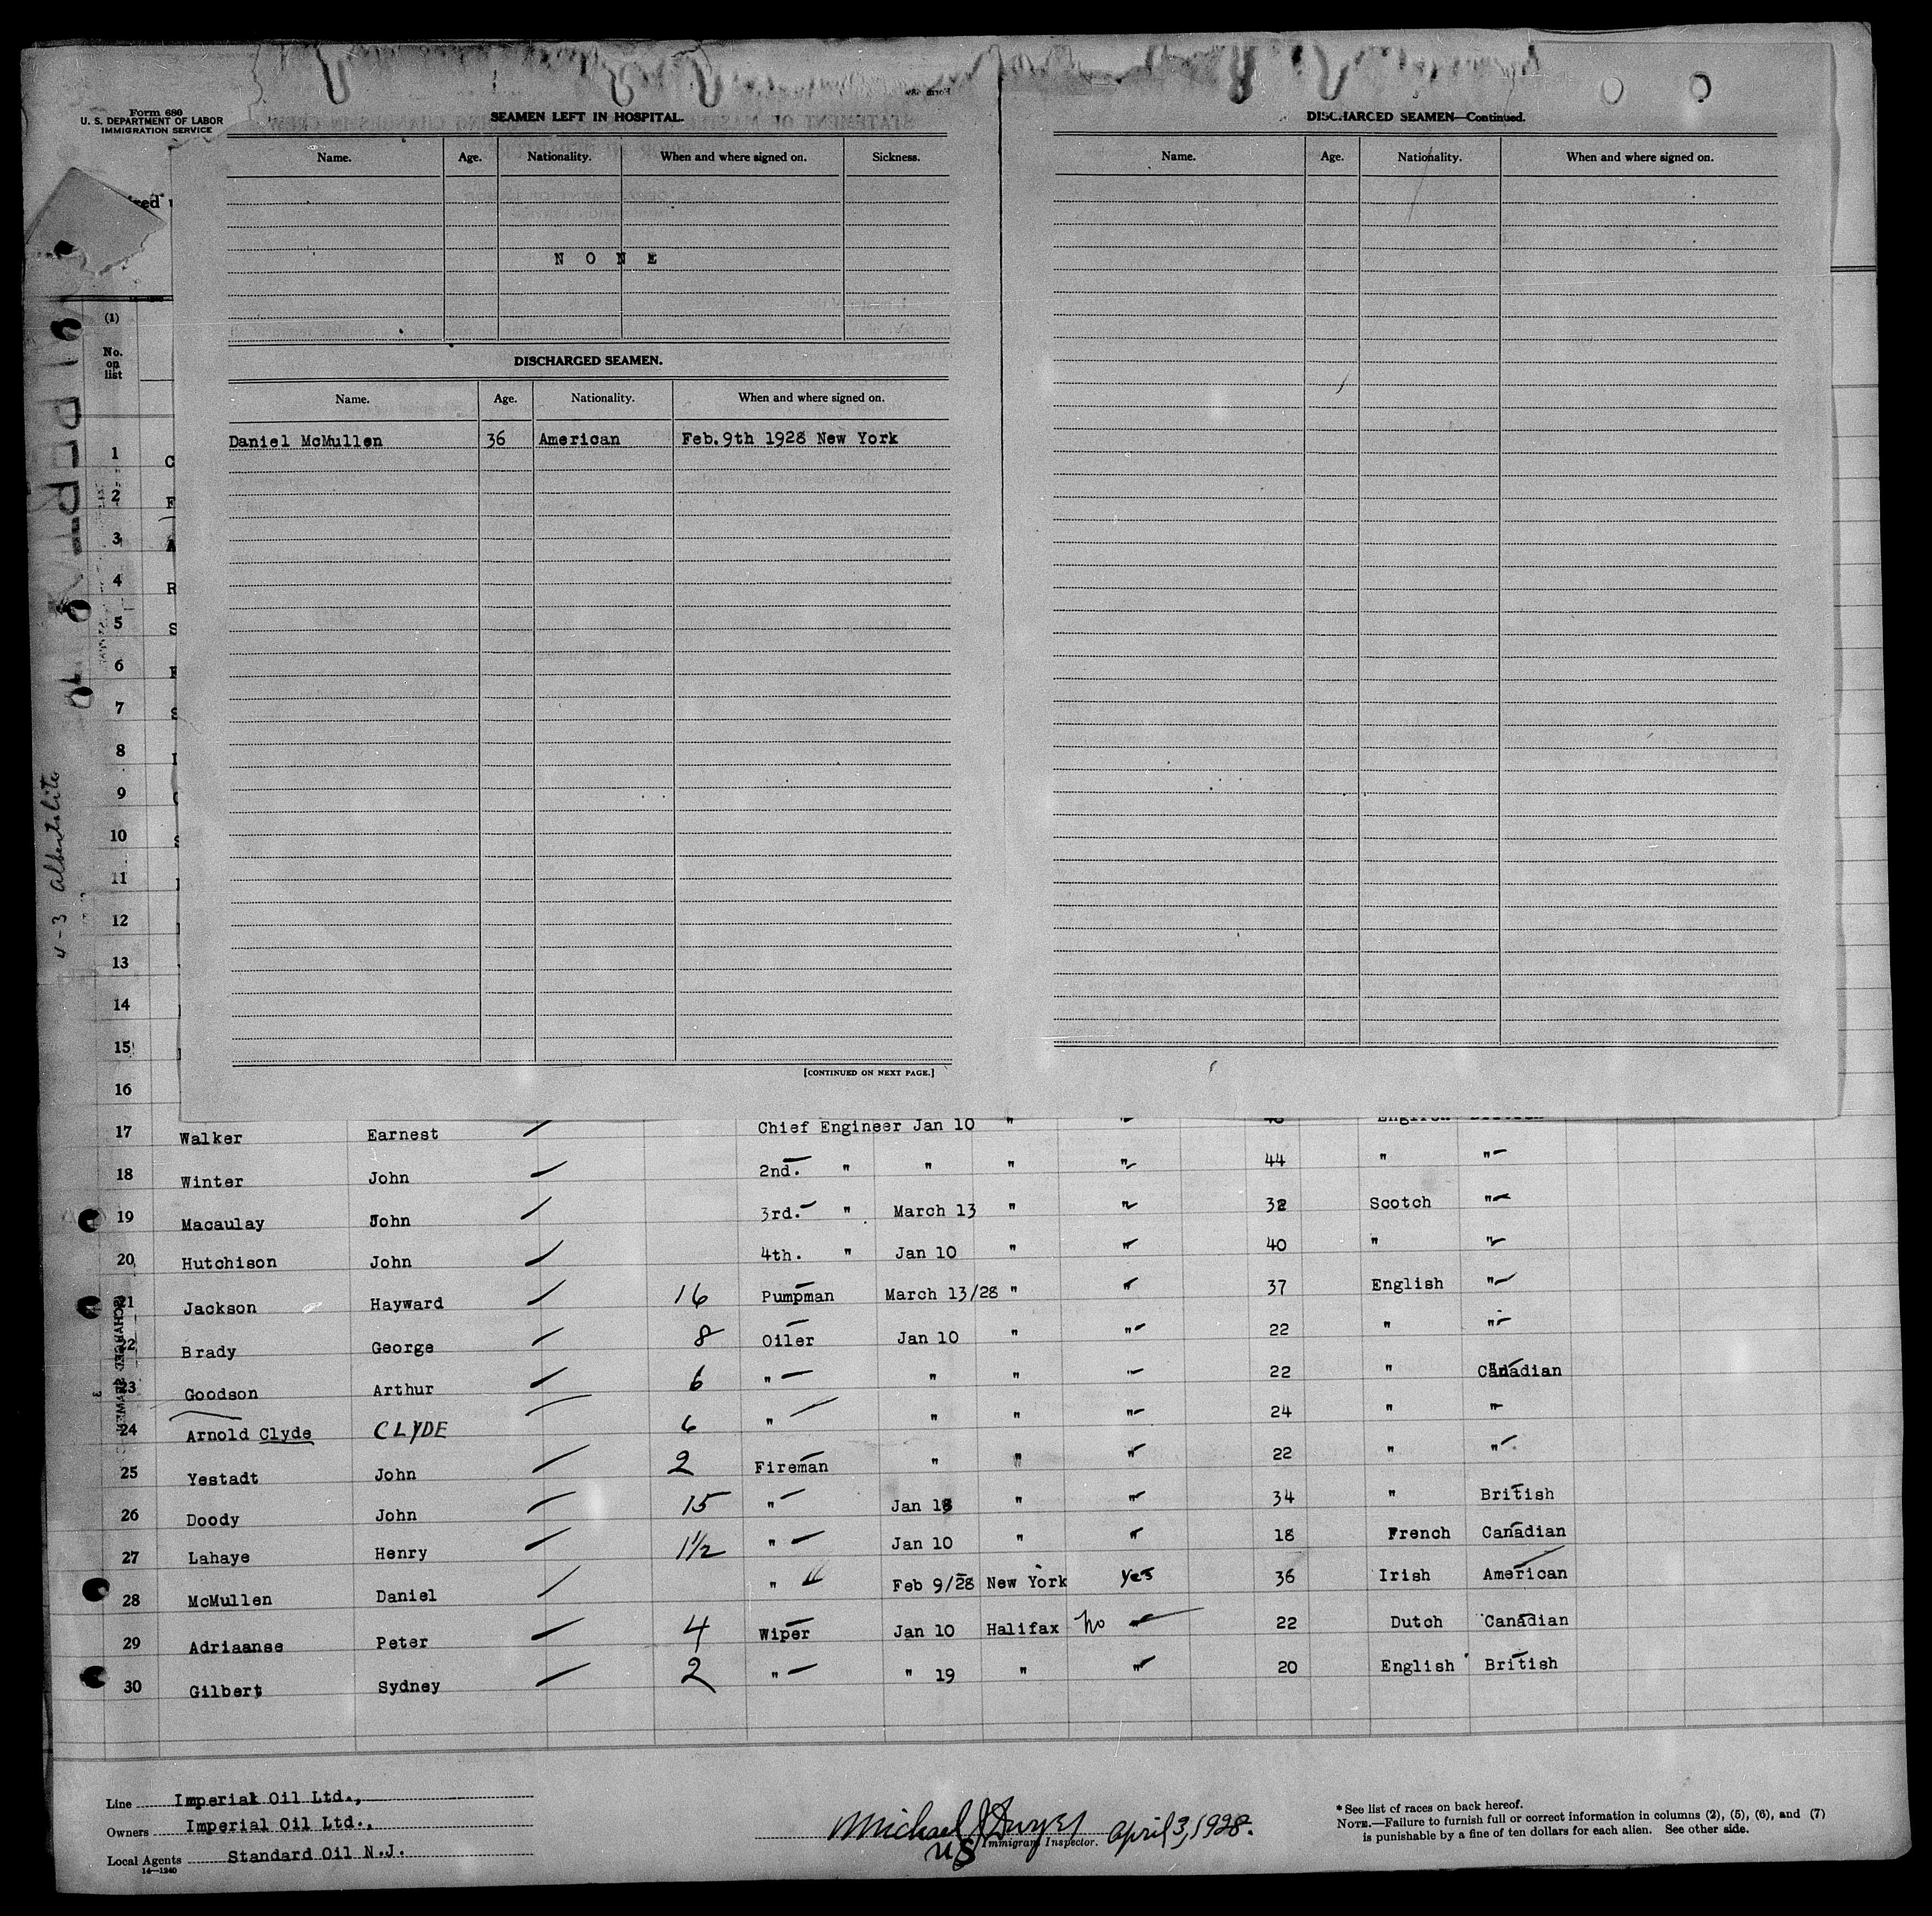 Form 680
U. S. DEPARTMENT OF LABOR
IMMIGRATION SERVICE
SEAMEN LEFT IN HOSPITAL.
Name. Age. Nationality. When and where signed on. Sickness.
N O N E
DISCHARGED SEAMEN.
Name. Age. Nationality. When and where signed on.
Daniel McMullen 36 American Feb. 9th 1928 New York
[CONTINUED ON NEXT PAGE.]
DISCHARGED SEAMEN—Continued.
Name. Age. Nationality. When and where signed on.
(1)
No.
on
list
1 C
2 F
3 A
4 R
5 S
6
7 S
8
9
10 S
11
12
13
14
15
16
17 Walker Earnest Chief Engineer Jan 10 "
18 Winter John 2nd. " " " " 44 " "
19 Macaulay John 3rd. " March 13 " " 32 Scotch "
20 Hutchison John 4th. " Jan 10 " " 40 " "
21 Jackson Hayward 16 Pumpman March 13/28 " " 37 English "
22 Brady George 8 Oiler Jan 10 " " 22 " "
23 Goodson Arthur 6 " " " " 22 " Canadian
24 Arnold Clyde CLYDE 6 " " " " 24 " "
25 Yestadt John 2 Fireman " " " 22 " "
26 Doody John 15 " Jan 18 " " 34 " British
27 Lahaye Henry 1½ " Jan 10 " " 18 French Canadian
28 McMullen Daniel " Feb 9/28 New York Yes 36 Irish American
29 Adriaanse Peter 4 Wiper Jan 10 Halifax No 22 Dutch Canadian
30 Gilbert Sydney 2 " " 19 " " 20 English British
4-3 Albertolite
Line Imperial Oil Ltd.,
Owners Imperial Oil Ltd.,
Local Agents Standard Oil N.J.
14—1240
Michael J Dwyer April 3, 1928.
US Immigrant Inspector.
* See list of races on back hereof.
NOTE.—Failure to furnish full or correct information in columns (2), (5), (6), and (7)
is punishable by a fine of ten dollars for each alien. See other side.